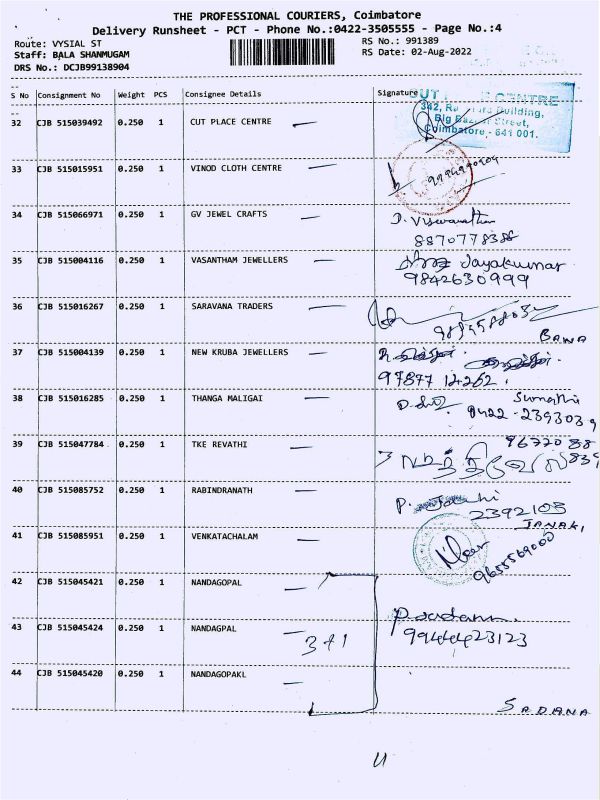 THE PROFESSIONAL COURIERS, Coimbatore
Delivery Runsheet - PCT - Phone No.:0422-3505555 - Page No.:4
Route: VYSIAL ST
RS No.: 991389
Staff: BALA SHANMUGAM
RS Date: 02-Aug-2022
DRS No.: DCJB99138904
S No Consignment No Weight PCS Consignee Details Signature
32 CJB 515039492 0.250 1 CUT PLACE CENTRE
CENTRE
Building,
Street,
Coimbatore - 641 001.
33 CJB 515015951 0.250 1 VINOD CLOTH CENTRE
34 CJB 515066971 0.250 1 GV JEWEL CRAFTS
D. Viswanathan
8870778386
35 CJB 515004116 0.250 1 VASANTHAM JEWELLERS
Jayakumar
9842630999
36 CJB 515016267 0.250 1 SARAVANA TRADERS
BAWA
37 CJB 515004139 0.250 1 NEW KRUBA JEWELLERS
97877 14262.
38 CJB 515016285 0.250 1 THANGA MALIGAI
Sumathi
0422-2393039
39 CJB 515047784 0.250 1 TKE REVATHI
40 CJB 515085752 0.250 1 RABINDRANATH
2392103
JANAKI
41 CJB 515085951 0.250 1 VENKATACHALAM
9655569000
42 CJB 515045421 0.250 1 NANDAGOPAL
43 CJB 515045424 0.250 1 NANDAGPAL
3+1
9944423123
44 CJB 515045420 0.250 1 NANDAGOPAKL
SADANA